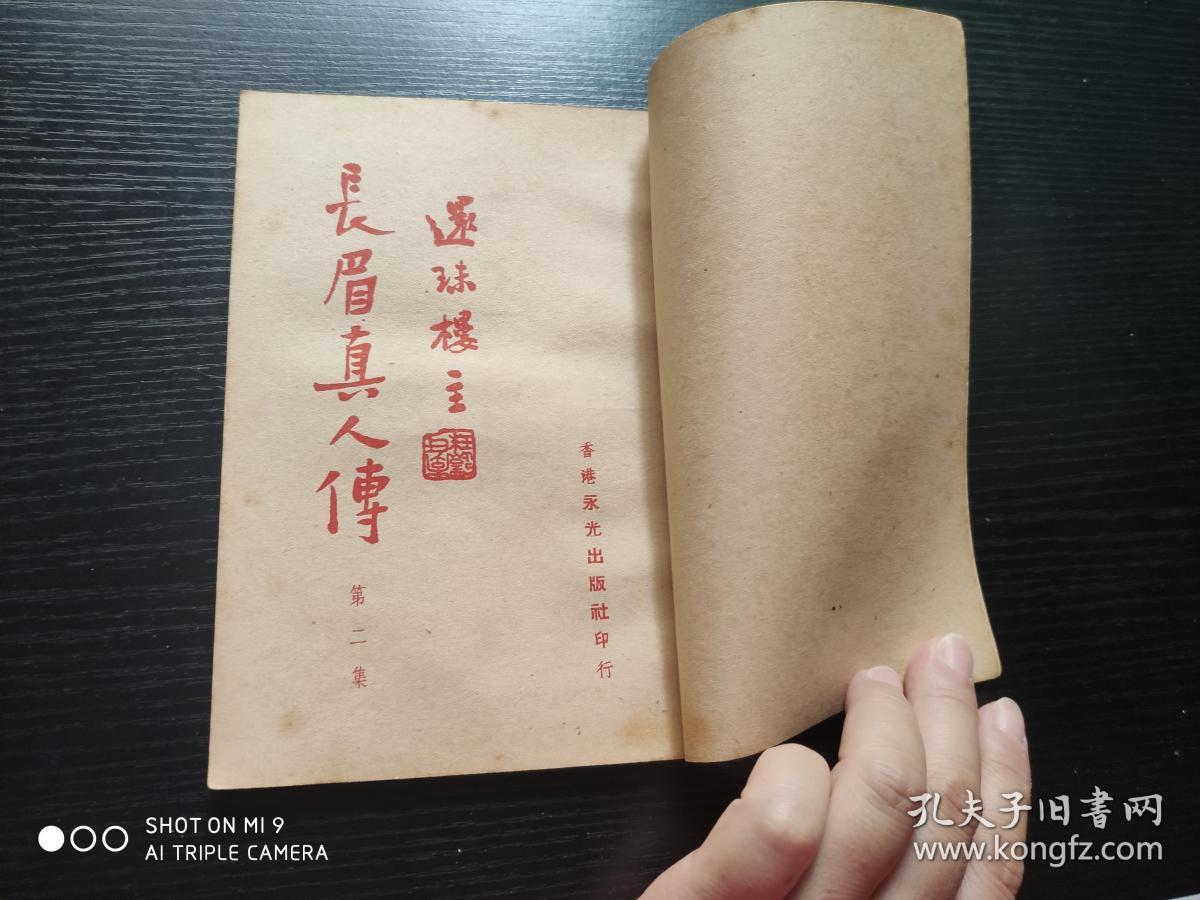 香港永光出版社印行
還珠樓主
長眉真人傳
第二集
SHOT ON MI 9
AI TRIPLE CAMERA
孔夫子旧書网
www.kongfz.com